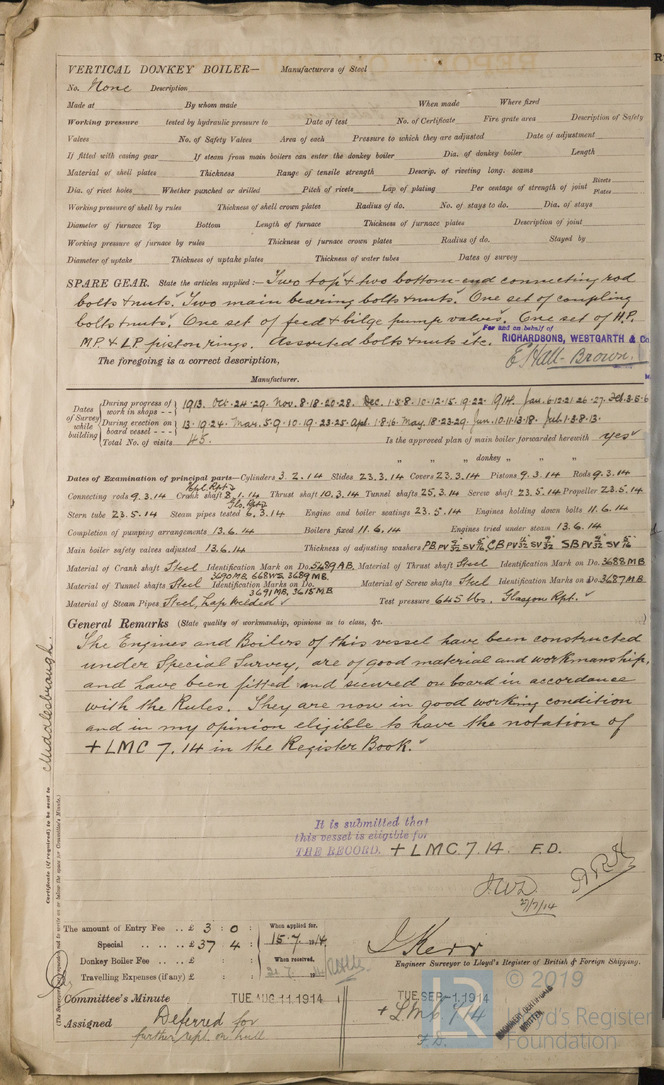 VERTICAL DONKEY BOILER— Manufacturers of Steel
No. None Description
Made at By whom made When made Where fixed
Working pressure tested by hydraulic pressure to Date of test No. of Certificate Fire grate area Description of Safety
Valves No. of Safety Valves Area of each Pressure to which they are adjusted Date of adjustment
If fitted with casing gear If steam from main boilers can enter the donkey boiler Dia. of donkey boiler Length
Material of shell plates Thickness Range of tensile strength Descrip. of riveting long. seams
Dia. of rivet holes Whether punched or drilled Pitch of rivets Lap of plating Per centage of strength of joint Rivets Plates
Working pressure of shell by rules Thickness of shell crown plates Radius of do. No. of stays to do. Dia. of stays
Diameter of furnace Top Bottom Length of furnace Thickness of furnace plates Description of joint
Working pressure of furnace by rules Thickness of furnace crown plates Radius of do. Stayed by
Diameter of uptake Thickness of uptake plates Thickness of water tubes Dates of survey
SPARE GEAR. State the articles supplied:— Two top & two bottom-end connecting rod
bolts & nuts. Two main bearing bolts & nuts. One set of coupling
bolts & nuts. One set of feed & bilge pump valves. One set of H.P.
M.P. & L.P. piston rings. Assorted bolts & nuts etc.
For and on behalf of
RICHARDSONS, WESTGARTH & Co
The foregoing is a correct description, E. Hill-Brown.
Manufacturer.
Dates of Survey while building
During progress of work in shops - - 1913. Oct. 24. 29. Nov. 8. 18. 20. 28. Dec. 1. 5. 8. 10. 12. 15. 19. 22. 914. Jan. 6. 12. 21. 26. 27. Feb. 3. 5. 6
During erection on board vessel - - - 13. 19. 24. Mar. 5. 9. 10. 19. 23. 25. Apl. 1. 8. 16. May. 18. 23. 29. Jun. 10. 11. 13. 18. Jul. 1. 3. 8. 13.
Total No. of visits 45. Is the approved plan of main boiler forwarded herewith yes
" " " donkey " " "
Dates of Examination of principal parts—Cylinders 3.2.14 Slides 23.3.14 Covers 23.3.14 Pistons 9.3.14 Rods 9.3.14
Hpl. Rpt.
Connecting rods 9.3.14 Crank shaft 8.1.14 Thrust shaft 10.3.14 Tunnel shafts 25.3.14 Screw shaft 23.5.14 Propeller 23.5.14
Gls. Rpt.
Stern tube 23.5.14 Steam pipes tested 6.3.14 Engine and boiler seatings 23.5.14 Engines holding down bolts 11.6.14
Completion of pumping arrangements 13.6.14 Boilers fixed 11.6.14 Engines tried under steam 13.6.14
Main boiler safety valves adjusted 13.6.14 Thickness of adjusting washers
Material of Crank shaft Steel Identification Mark on Do. 5689AB. Material of Thrust shaft Steel Identification Mark on Do. 3688MB
3690MB, 668WS, 3689MB.
Material of Tunnel shafts Steel Identification Marks on Do. Material of Screw shafts Steel Identification Marks on Do. 3687MB.
3691MB, 3615MB
Material of Steam Pipes Steel, Lap welded Test pressure 645 lbs. Glasgow Rpt.
General Remarks (State quality of workmanship, opinions as to class, &c.
The Engines and Boilers of this vessel have been constructed
under Special Survey, are of good material and workmanship,
and have been fitted and secured on board in accordance
with the Rules. They are now in good working condition
and in my opinion eligible to have the notation of
+ LMC 7.14 in the Register Book.
It is submitted that
this vessel is eligible for
THE RECORD. + LMC. 7.14. F.D.
J.W.D.
27/7/14
Certificate (if required) to be sent to Middlesbrough.
The amount of Entry Fee .. £ 3 : 0 : When applied for.
Special .. .. .. £ 37 : 4 : 15.7.1914
Donkey Boiler Fee .. £ : : When received.
Travelling Expenses (if any) £ : :
J. Kerr
Engineer Surveyor to Lloyd's Register of British & Foreign Shipping.
Committee's Minute TUE. AUG 11. 1914 TUE. SEP -1. 1914
Assigned Deferred for + LMC 7.14
further rept. on hull F.D.
MACHINERY CERTIFICATE
WRITTEN
© 2019
Lloyd's Register
Foundation